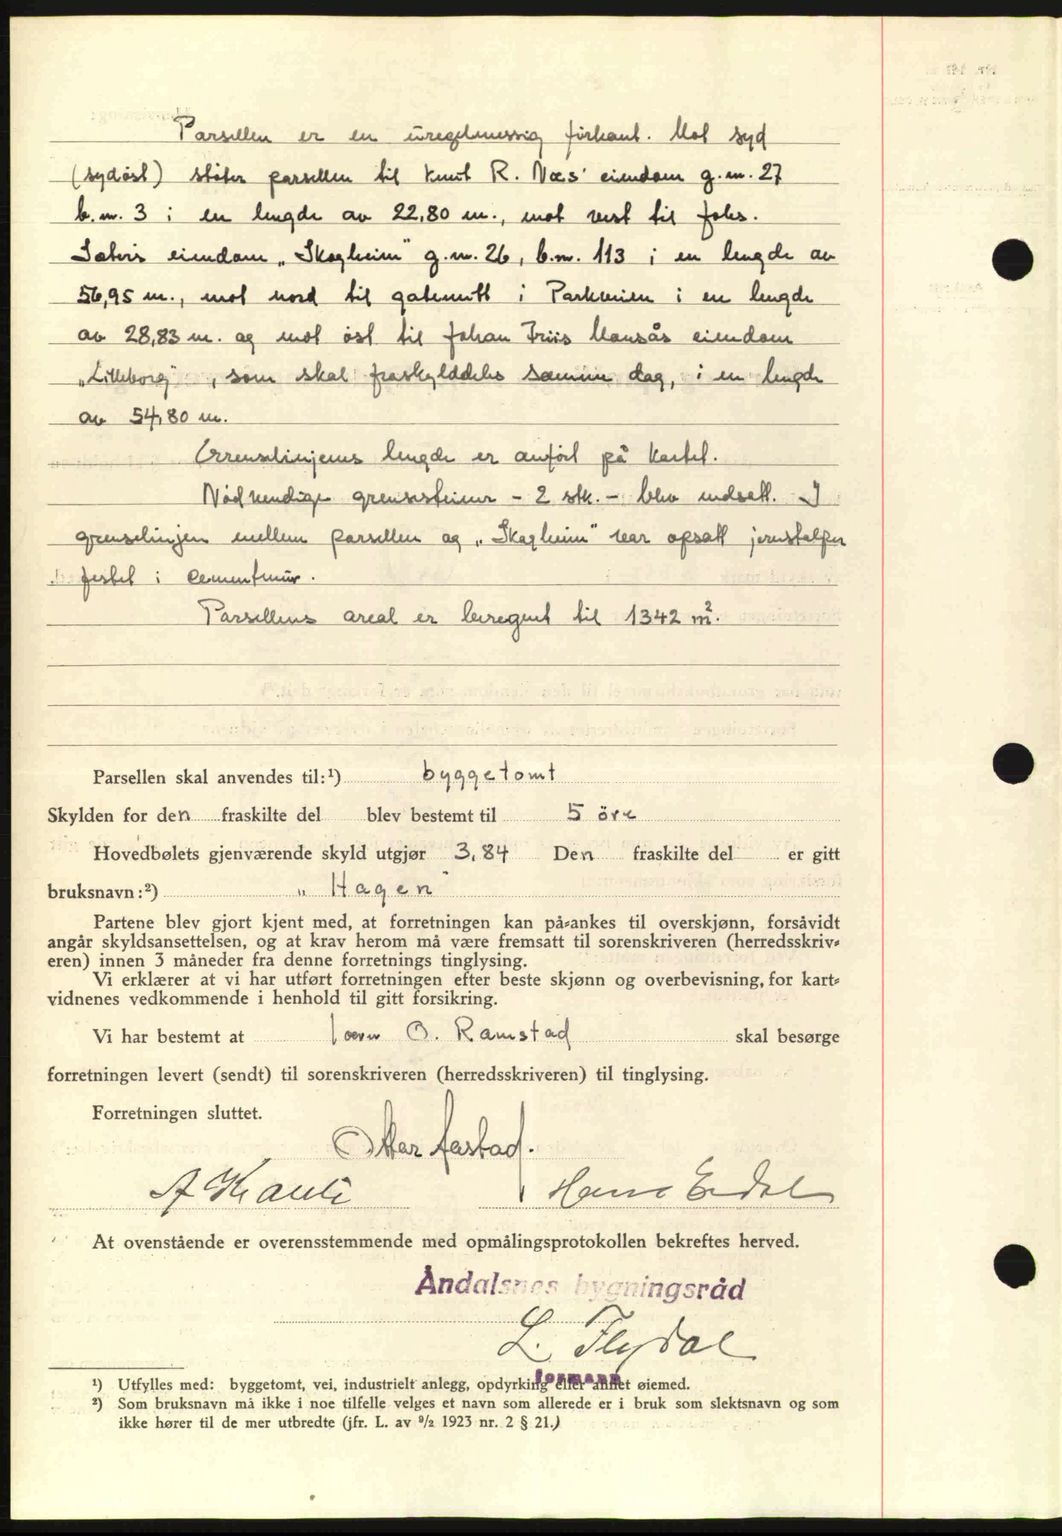 Parsellen er en uregelmessig firkant. Mot syd
(sydöst) støter parsellen til Knut R. Næs' eiendom g.nr. 27
b.nr. 3 i en lengde av 22,80 m., mot vest til Johs.
Sæters eiendom „Skogheim" g.nr. 26, b.nr. 113 i en lengde av
56,95 m., mot nord til gatemitt i Parkveien i en lengde
av 28,83 m. og mot öst til Johan Friis Monsås eiendom
„Lilleborg", som skal fraskylddeles samme dag, i en lengde
av 54,80 m.
Grenselinjens lengde er anfört på kartet.
Nödvendige grensesteiner - 2 stk. - blev nedsatt. I
grenselinjen mellem parsellen og „Skogheim" var opsatt jernstolper
festet i cementmur.
Parsellens areal er beregnet til 1342 m².
Parsellen skal anvendes til:¹) byggetomt
Skylden for den fraskilte del blev bestemt til 5 öre
Hovedbølets gjenværende skyld utgjør 3,84 Den fraskilte del er gitt
bruksnavn:²) „Hagen"
Partene blev gjort kjent med, at forretningen kan på-ankes til overskjønn, forsåvidt
angår skyldsansettelsen, og at krav herom må være fremsatt til sorenskriveren (herredsskriv-
eren) innen 3 måneder fra denne forretnings tinglysing.
Vi erklærer at vi har utført forretningen efter beste skjønn og overbevisning, for kart-
vidnenes vedkommende i henhold til gitt forsikring.
Vi har bestemt at O. Ramstad skal besørge
forretningen levert (sendt) til sorenskriveren (herredsskriveren) til tinglysing.
Forretningen sluttet.
Ottar
A Hans
At ovenstående er overensstemmende med opmålingsprotokollen bekreftes herved.
Åndalsnes bygningsråd
L. Flydal
formann
¹) Utfylles med: byggetomt, vei, industrielt anlegg, opdyrking eller annet øiemed.
²) Som bruksnavn må ikke i noe tilfelle velges et navn som allerede er i bruk som slektsnavn og som
ikke hører til de mer utbredte (jfr. L. av ⁹/₂ 1923 nr. 2 § 21.)